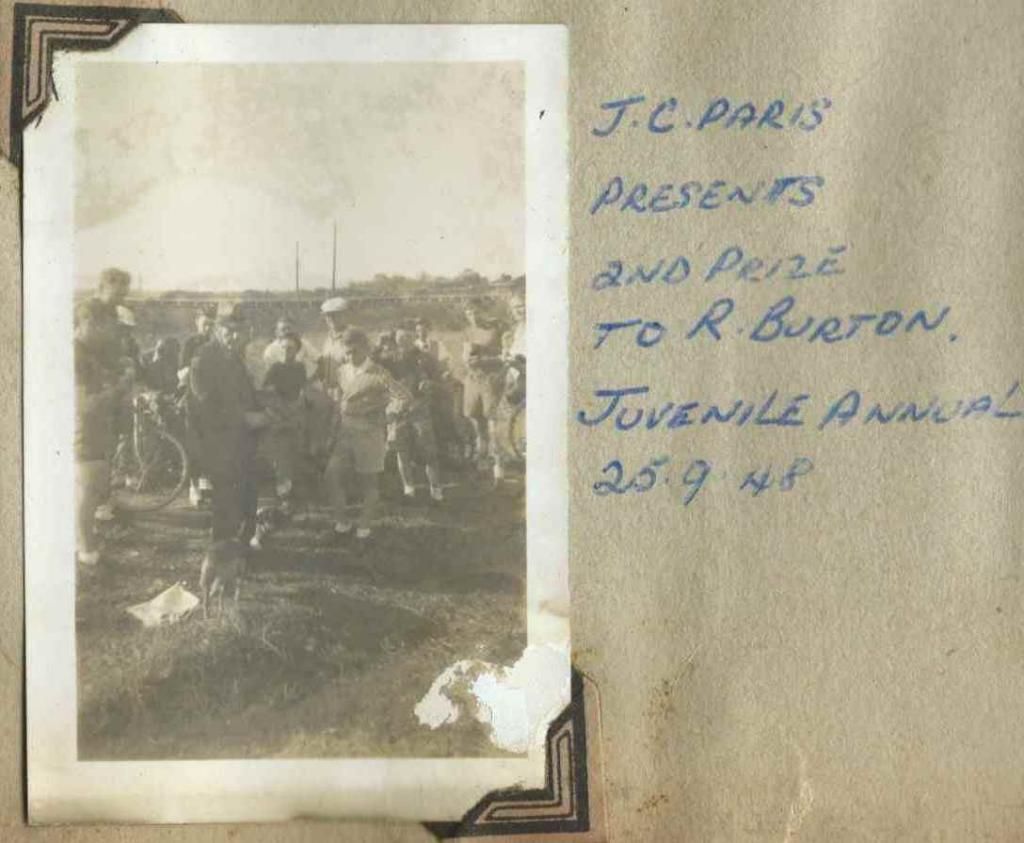 J.C. PARIS
PRESENTS
2ND PRIZE
TO R. BURTON.
JUVENILE ANNUAL
25.9.48